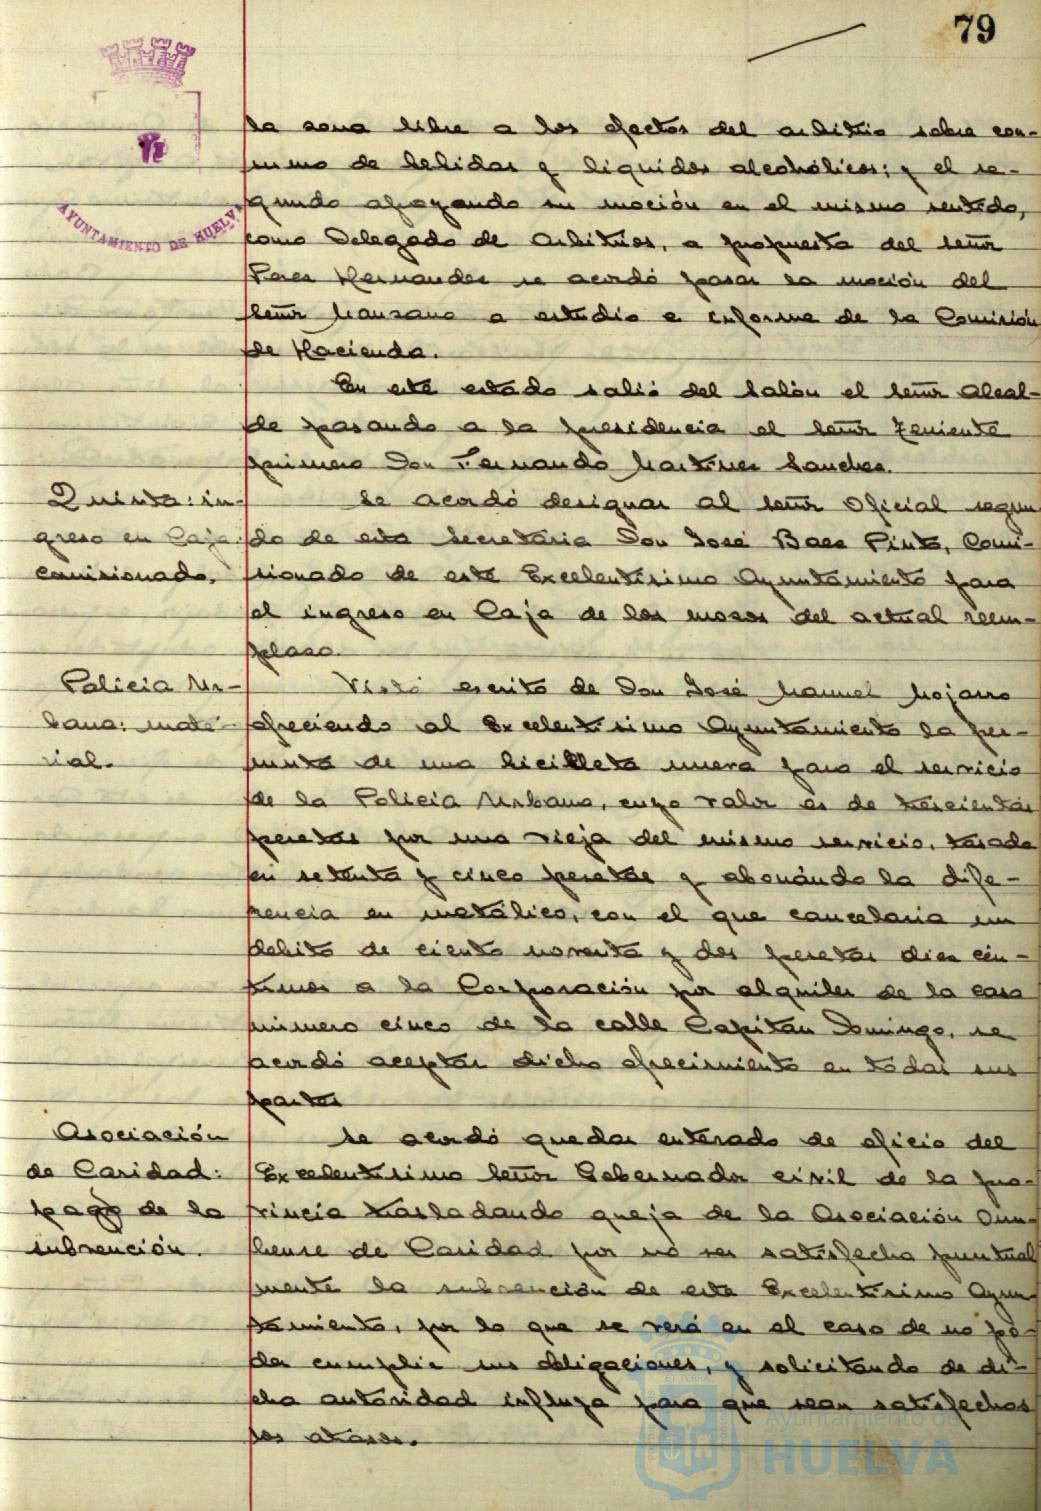 79
AYUNTAMIENTO DE HUELVA
la zona libre a los efectos del arbitrio sobre con-
sumo de bebidas y liquidos alcohólicos; y el se-
gundo apoyando su moción en el mismo sentido,
como Delegado de Arbitrios, a propuesta del señor
Perez Hernandez se acordó pasar la moción del
señor Manzano a estudio e informe de la Comisión
de Hacienda.
En este estado salió del Salón el señor Alcal-
de pasando a la presidencia el señor Teniente
primero Don Fernando Martinez Sanchez.
Quinta: in-
greso en Caja:
comisionado.
Se acordó designar al señor Oficial segun-
do de esta Secretaria Don José Baez Pinto, Comi-
sionado de este Excelentisimo Ayuntamiento para
el ingreso en Caja de los mozos del actual reem-
plazo.
Policia Ur-
bana: mate-
rial.
Visto escrito de Don José Manuel Mojarro
ofreciendo al Excelentisimo Ayuntamiento la per-
muta de una bicicleta nueva para el servicio
de la Policia Urbana, cuyo valor es de trescientas
pesetas por una vieja del mismo servicio, tasada
en setenta y cinco pesetas y abonándo la dife-
rencia en metálico, con el que cancelaria un
debito de ciento noventa y dos pesetas diez cén-
timos a la Corporación por alquiler de la casa
número cinco de la calle Capitan Domingo, se
acordó aceptar dicho ofrecimiento en todas sus
partes
Asociación
de Caridad:
pago de la
subvención.
Se acordó quedar enterado de oficio del
Excelentisimo señor Gobernador civil de la pro-
vincia trasladando queja de la Asociación Onu-
bense de Caridad por no ser satisfecha puntual
mente la subvención de este Excelentisimo Ayun-
tamiento, por lo que se verá en el caso de no po-
der cumplir sus obligaciones, y solicitando de di-
cha autoridad influya para que sean satisfechos
los atrasos.
Ayuntamiento de
HUELVA